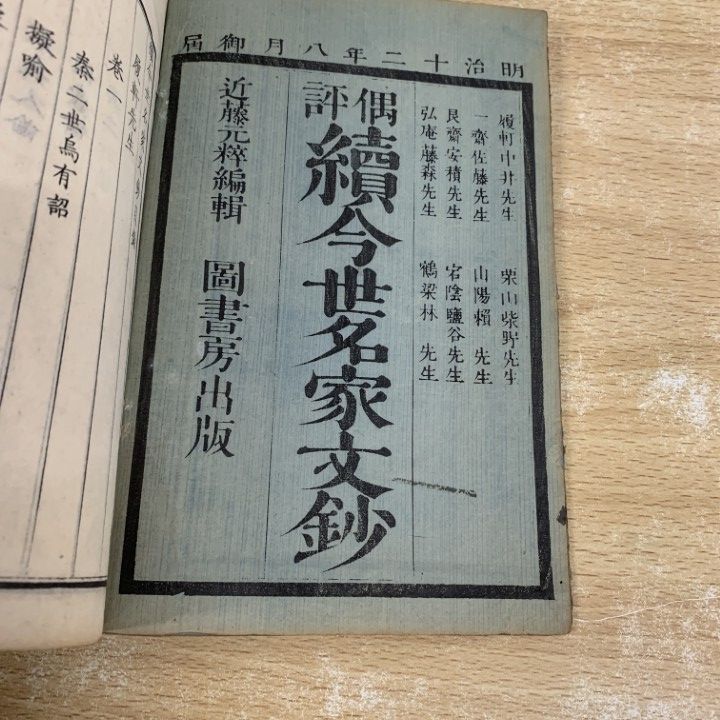 明治十二年八月御届
履軒中井先生 栗山柴野先生
一齋佐藤先生 山陽賴先生
艮齋安積先生 宕陰鹽谷先生
弘庵藤森先生 鶴梁林先生
偶評
續今世名家文鈔
近藤元粹編輯 圖書房出版
卷一
秦二世烏有詔
擬喻